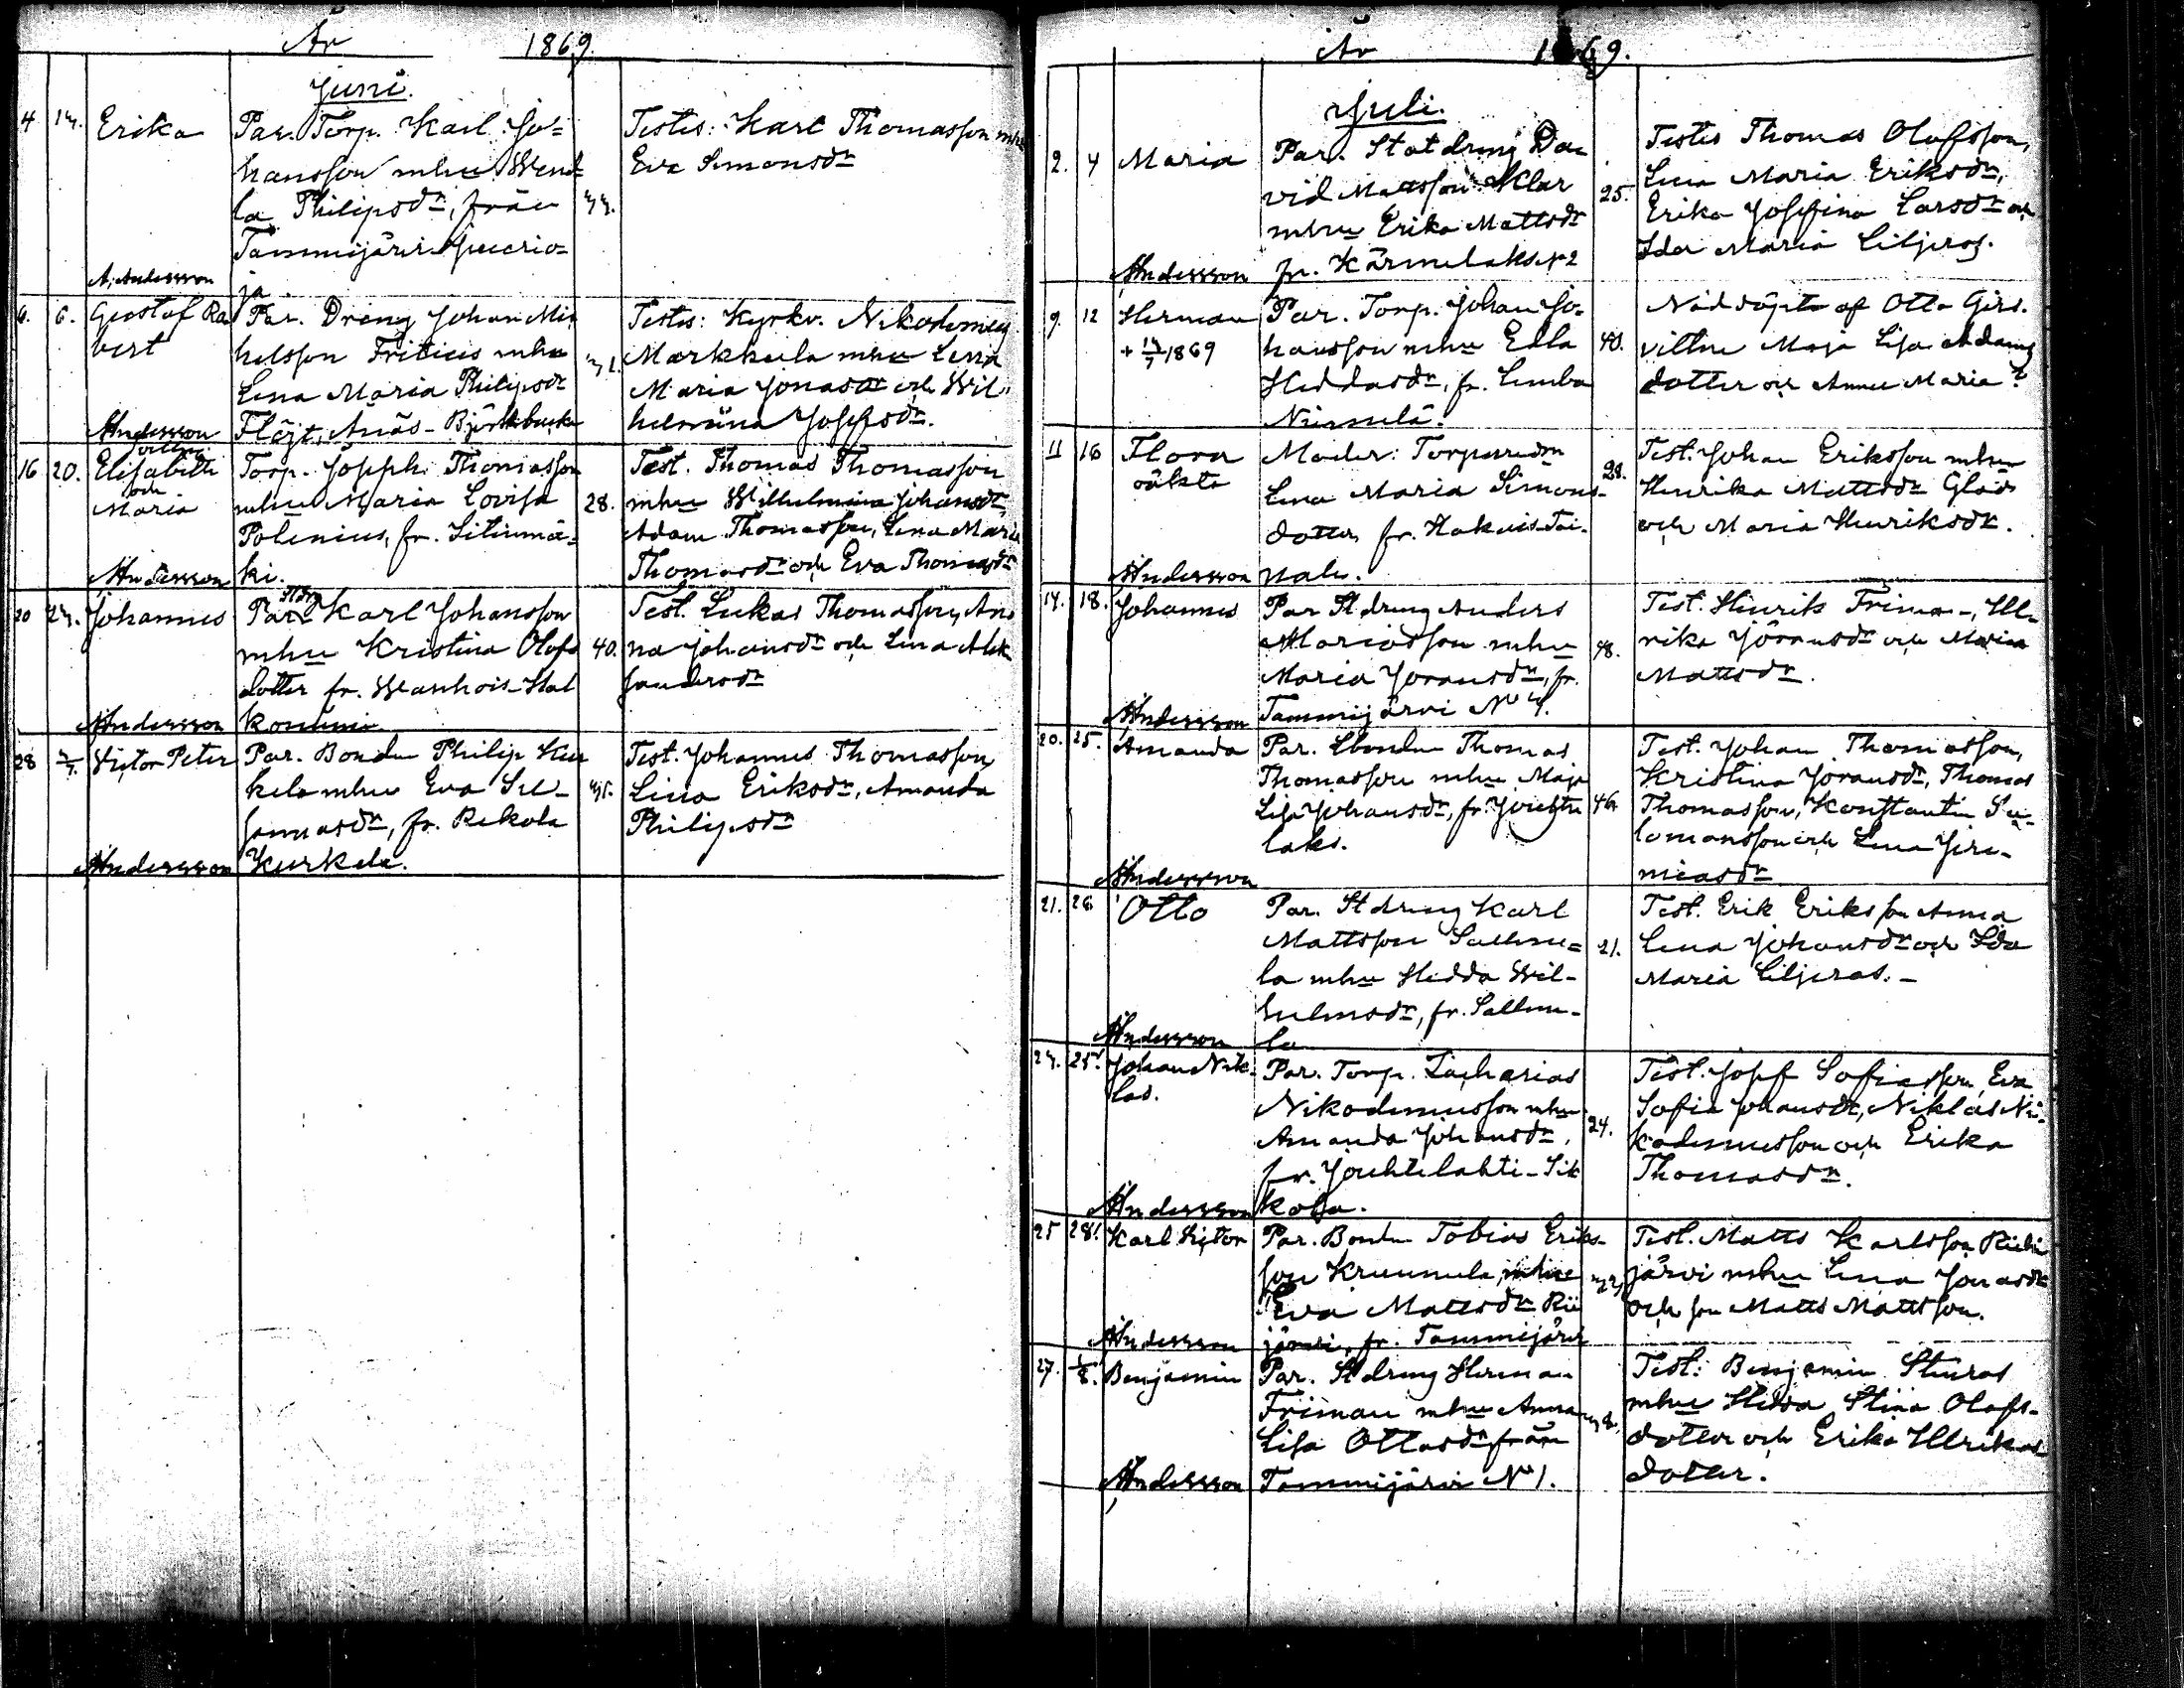 År 1869.
Juni.
4 14. Erika Par. Torp. Karl Jo-
hansson mhu Wend-
la Philipsdr, från
Tammijärvi Juurio-
ja
A. Andersson
Testes: Karl Thomasson mhu
Eva Simonsdr
6. 6. Gustaf Ra
bert
Par. Dreng Johan Mi
helsson Friticus mhu
Lena Maria Philipsdr
Flöjt, Anäs-Björkbacka
Andersson
Testes: Kyrkv. Nikodemus
Markkula mhu Lena
Maria Jonasdr och Wil-
helmina Josefsdr.
16 20. Elisabeth
och
Maria
Torp. Joseph Thomasson
mhu Maria Lovisa
Polenius, fr. Litinmä-
ki.
Andersson
28.
Test. Thomas Thomasson
mhu Wilhelmina Johansdr
Adam Thomasson, Lena Maria
Thomasdr och Eva Thomasdr
20 24. Johannes
Par. Karl Johansson
mhu Kristina Olofs
dotter fr. Wanhois-Hal
koniemi
Andersson
40.
Test. Lukas Thomasson, An
na Johansdr och Lena Alek
sandersdr
28 Victor Peter
Par. Bonden Philip Kur
kela mhu Eva Su-
sannasdr, fr. Rekola
Kurkela.
Andersson
45.
Test. Johannes Thomasson
Lina Eriksdr, Amanda
Philipsdr
År 1869.
Juli.
2. 4 Maria
Par. Statdreng Da
vid Mattsson Klar
mhu Erika Mattsdr
fr. Kärmelaks N 2
Andersson
25.
Testes Thomas Olofsson,
Lena Maria Eriksdr,
Erika Josefina Larsdr och
Ida Maria Liljeros.
9. 12 Herman
+ 14/7 1869
Par. Torp. Johan Jo-
hansson mhu Edla
Heddasdr, fr. Lemba
Niemelä.
40.
Nöddöpte af Otto Girs.
vittne Maja Lisa Adams
dotter och Anna Maria?
11 16 Flora
oäkta
Moder:
Lena Maria Simons-
dotter fr. Hakuis-Tai-
pale.
Andersson
28.
Test. Johan Eriksson mhu
Henrika Mattsdr Glad
och Maria Henriksdr.
14. 18. Johannes
Par Stdreng Anders
Mariasson mhu
Maria Joransdr, fr.
Tammijärvi No 4.
Andersson
48.
Test. Henrik Friman, Ul-
rika Jöransdr och Maria
Mattsdr.
20. 25. Amanda
Par. Bonden Thomas
Thomasson mhu Maja
Lisa Johansdr, fr. Jouhte
laks.
Andersson
46.
Test. Johan Thomasson,
Kristina Joransdr, Thomas
Thomasson, Konstantin Sa-
lomonsson och Lena Jere-
miasdr
21. 26 Otto
Par. Stdreng Karl
Mattsson Sallme-
la mhu Hedda Wil-
helmsdr, fr. Sallme-
la
Andersson
21.
Test. Erik Eriksson Anna
Lena Johansdr och Ida
Maria Liljeros.-
24. 25. Johan Nik-
las.
Par. Torp. Zacharias
Nikodemusson mhu
Amanda Johansdr,
fr. Jouhtelahti-Sik
kola.
Andersson
24.
Test. Josef Sofiasson, Eva
Sofia Johansdr, Niklas Ni-
kodemusson och Erika
Thomasdr.
25 28. Karl Victor
Par. Bonden Tobias Eriks-
son Kruunula, mhu
Eva Mattsdr Rii
järvi, fr. Tammijärvi
Andersson
Test. Matts Karlsson Riihi
järvi mhu Lena Jonasdr
och son Matts Mattsson.
27. 1/8. Benjamin
Par. Stdreng Herman
Friman mhu Anna
Lisa Ottosdr från
Tammijärvi No 1.
Andersson
Test: Benjamin Stenros
mhu Hedda Stina Olofs-
dotter och Erika Ulrikas-
dotter.